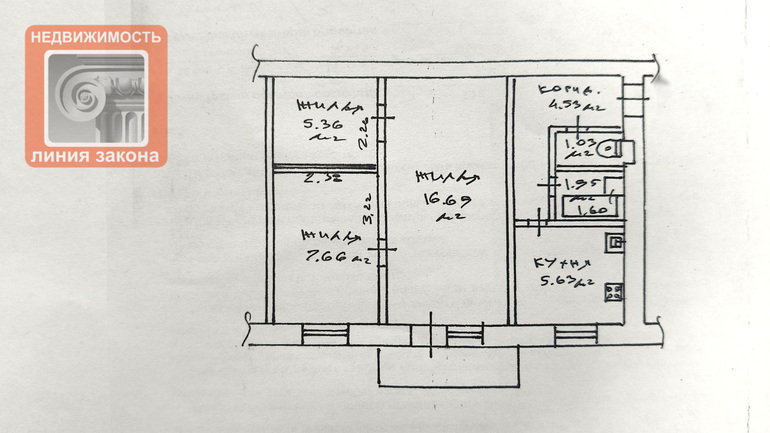 НЕДВИЖИМОСТЬ
линия закона
жилая
5.36
м2
2.26
2.32
3,22
жилая
7.66 м2
жилая
16.69
м2
корид.
4.53 м2
1.03
м2
1.95
м2
1.60
кухня
5.63 м2